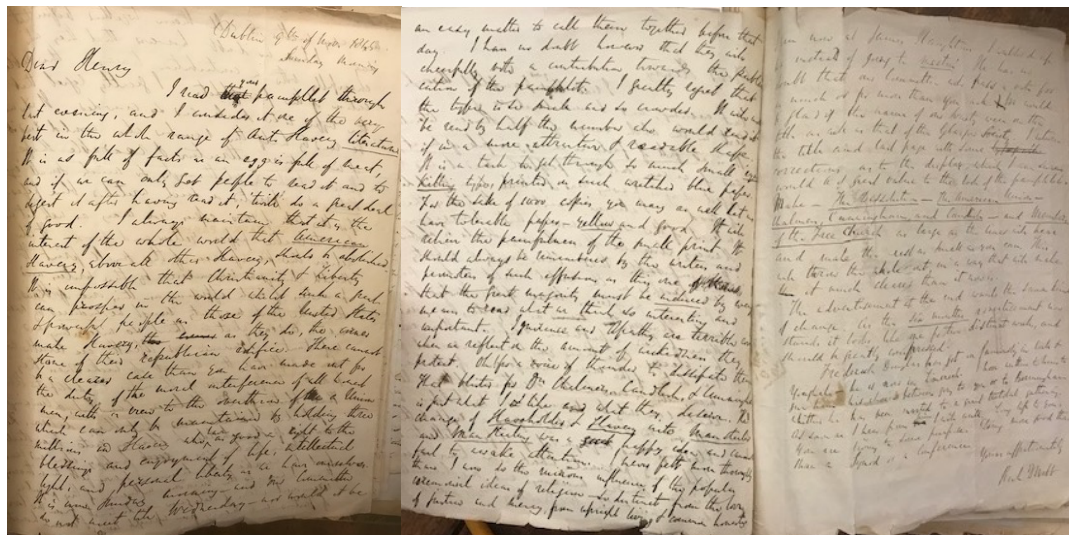 Dublin 9th of Novr 1845
Sunday Morning
Dear Henry
I read your pamphlet through
last evening, and I consider it one of the very
best in the whole range of Anti Slavery literature
It is as full of facts as an egg is full of meat,
and if we can only get people to read it and to
digest it after having read it, twill do a great deal
of good. I always maintain that it is the
interest of the whole world that American
Slavery above all other Slavery, should be abolished.
It is impossible that Christianity & Liberty
can prosper in the world whilst such a
people as those of the United States
make Slavery, as they do, the corner
stone of their republican edifice. There cannot
be a clearer case than you have made out for
the duty of the moral interference of all good
men, with a view to the
which can only be maintained by holding three
millions in Slavery who have as good a right to the
blessings and enjoyment of life, intellectual
light, and personal liberty as we have ourselves.
It is now Sunday morning and our Committee
do not meet till Wednesday - nor would it be
an easy matter to call them together before that
day. I have no doubt however that they will
cheerfully vote a contribution towards the publi
cation of the pamphlet. I greatly regret that
the type is so small and so crowded. It will not
be read by half the number who would read it
if in a more attractive & readable shape.
It is a task to get through so much small eye
killing type, printed on such wretched blue paper.
For the sake of 1000 copies you may as well let us
have tolerable paper - yellow and good. It will
relieve the painfulness of the small print. It
should always be remembered by the writers and
promoters of such effusions as this one
that the great majority must be induced by every
means to read what we think so interesting and
important. Ignorance and Apathy are terrible
when we reflect on the amount of wickedness they
protect. Oh for a voice of thunder to dissipate them
That blister for Dr Chalmers, Candlish, & Cunningham
is just what I like and what they deserve. The
change of Slaveholders & Slavery into Manstealers
and Man Stealing was a happy idea and
fuel to awake attention. I never felt more thoroughly
than I do so the ruinous influence of the popular
ceremonial ideas of religion - so distinct from the love
of justice and mercy, from upright living & common honesty
I am now at James Haughton's
instead of going to meeting. He has no
doubt that our Committee will pass a vote for
much or for more than you ask & would
glad of the names of our Society
is that of the Glasgow Society. I return
the title and last page with some
corrections as to the display which I am sure
would be of great value to the look of the pamphlet
Make - The Dissolution - the American Union -
Chalmers, Cunningham and Candlish - and Members
of the Free Church as large as the
and make the rest as small as you can. This
will throw the whole out in a way that will make
it much clearer than it is now.
The advertisement at the end wants the same kind
of change. As the arrangement now
stands, it looks like four distinct works, and
should be greatly compressed.
Frederick Douglass has got on famously in Cork &
he is now in Limerick. I have written to him to
between this to you or to Birmingham
whither he has been invited to a grand teetotal gathering.
As soon as I hear from him I will write. Long life to you
You are living to some purpose. Doing more good than
than a Synod or a Conference.
Yours affectionately
Richd D Webb